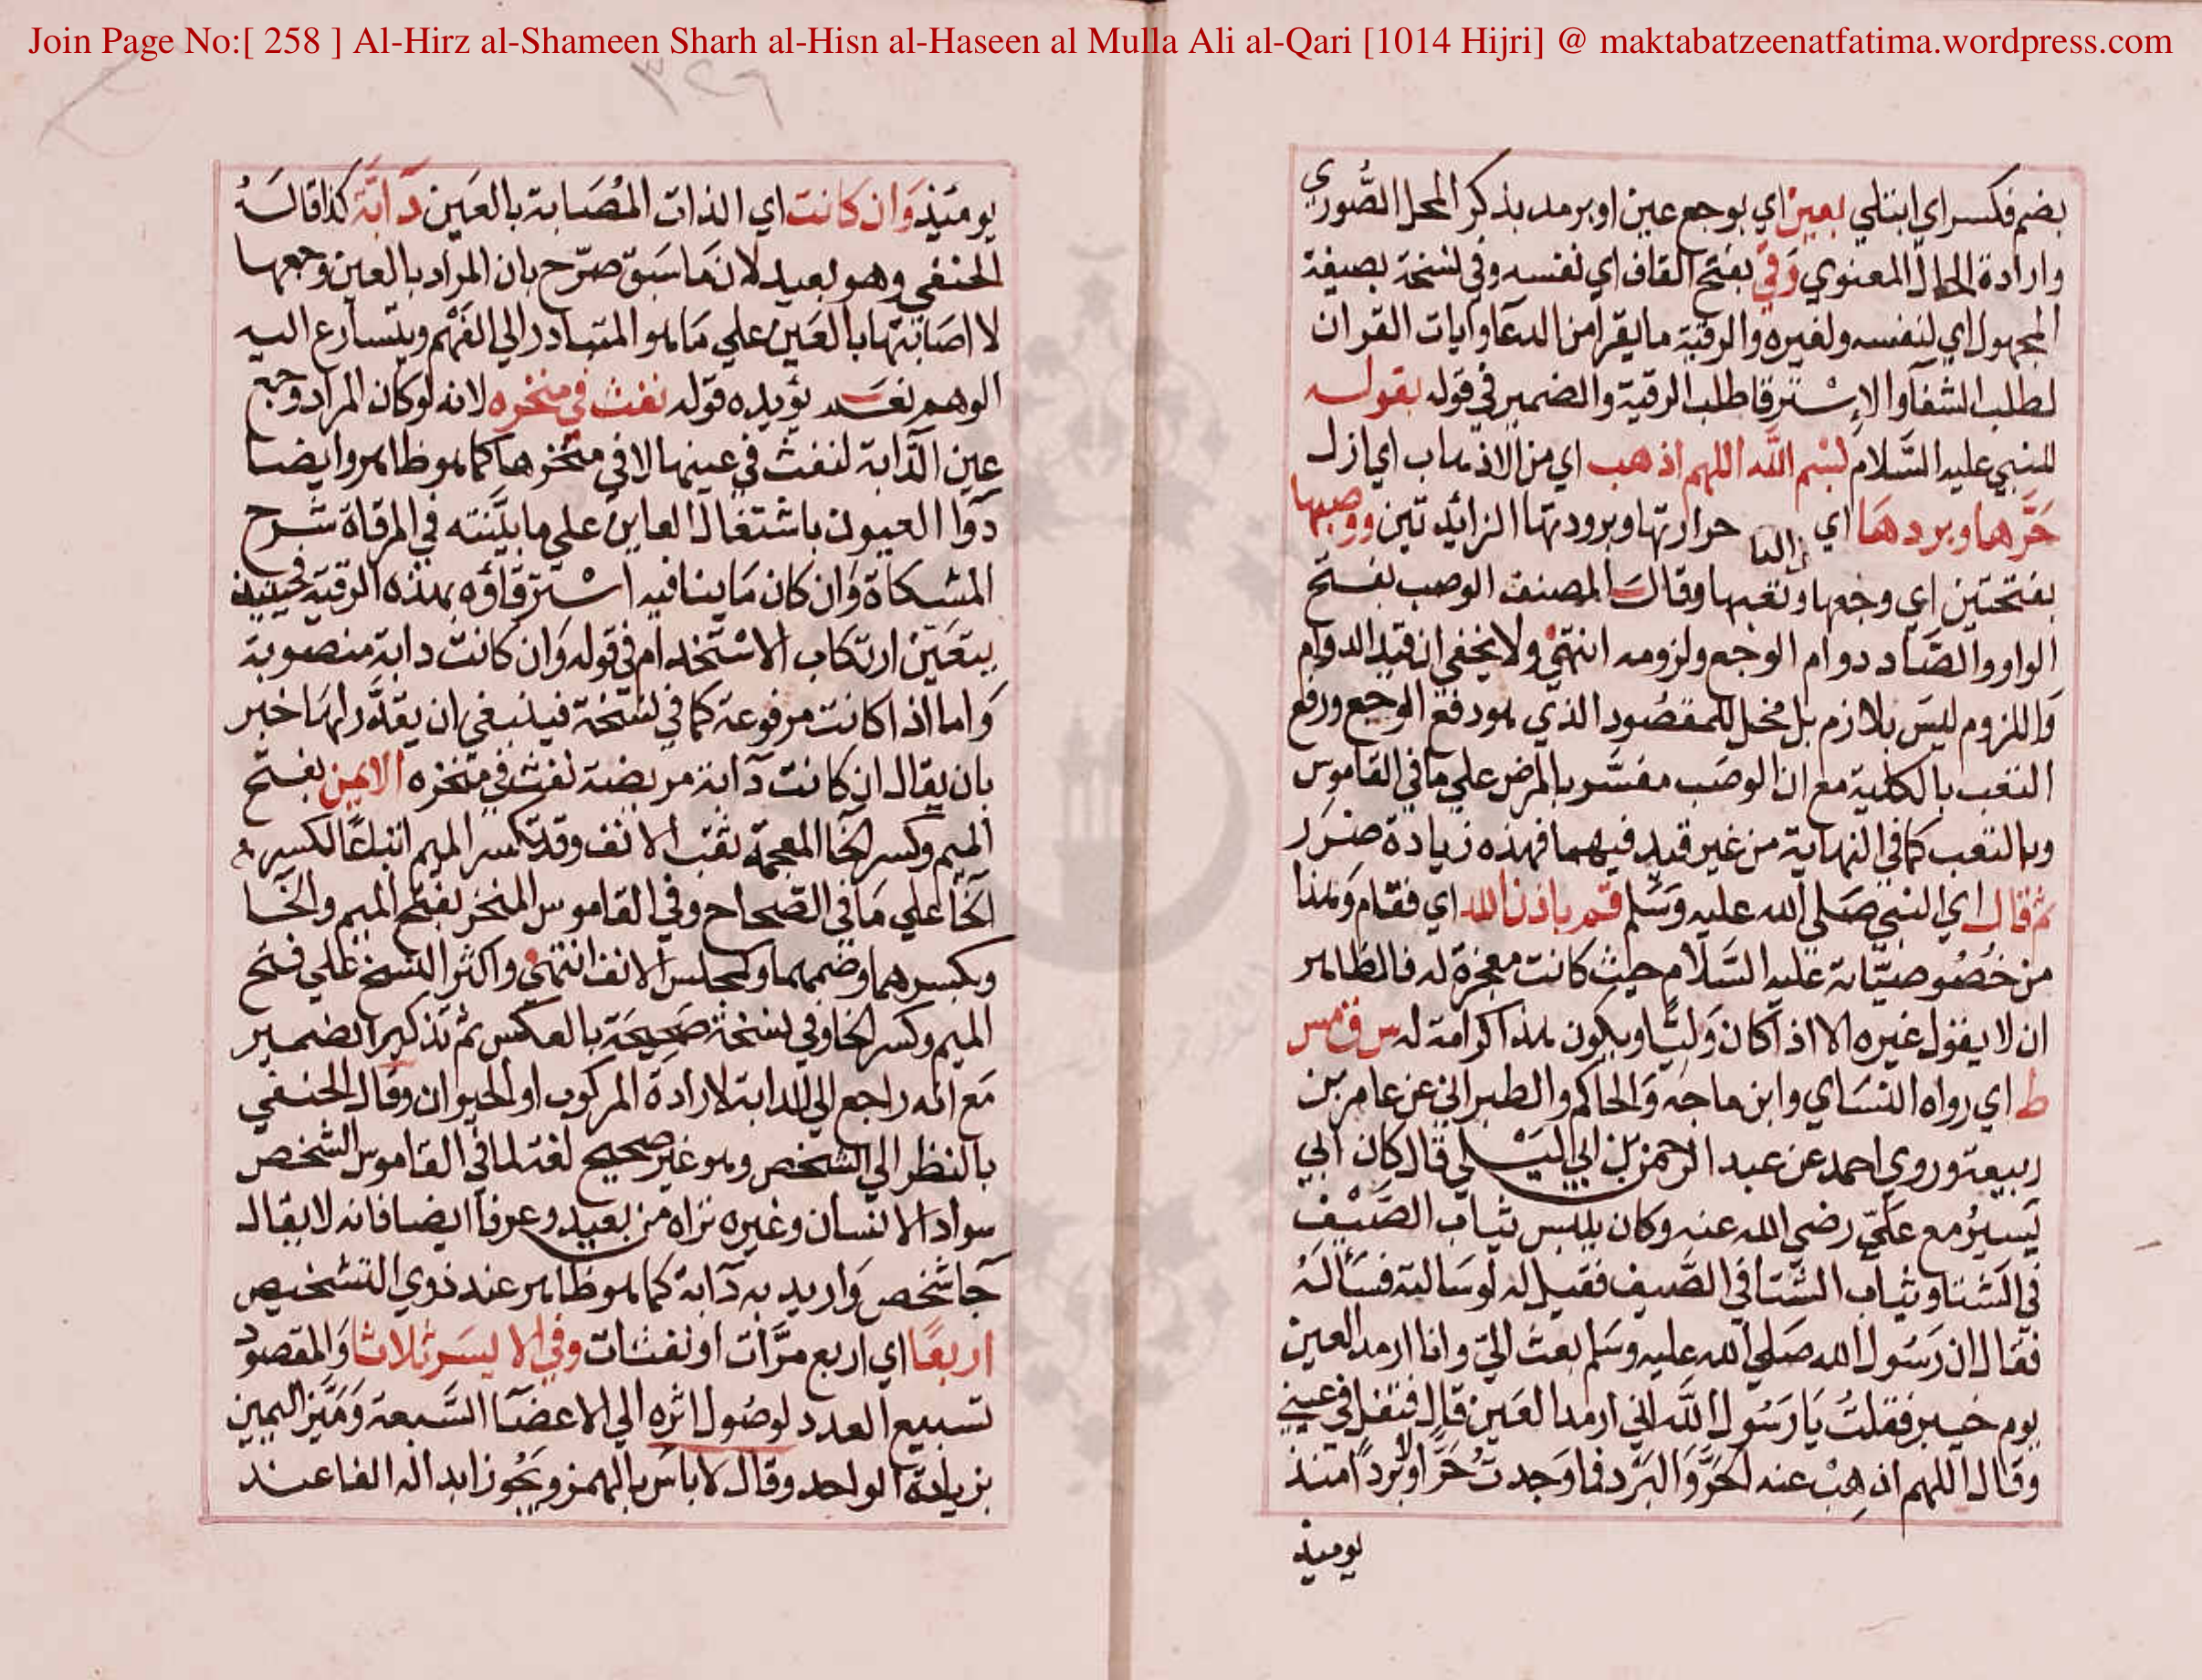 Join Page No:[ 258 ] Al-Hirz al-Shameen Sharh al-Hisn al-Haseen al Mulla Ali al-Qari [1014 Hijri] @ maktabatzeenatfatima.wordpress.com
٣٢٦
بضم فكسر اي ابتلي بعين اي بوجع عين او برمد بذكر المحل الصُّوري
وارادة الحال المعنوي رَقيَ بفتح القاف اي نفسه وفي نسخة بصيغة
المجهول اي لنفسه ولغيره والرقية ما يقرا من الدعا وايات القران
لطلب الشفا والاِسْترقا طلب الرقية والضمير في قوله بقوله
للنبي عليه السَّلام بسْم الله اللهم اذهب اي من الاذهاب اي ازل
حَرَّها وبردهَا اي حرارتها وبرودتها الزائدتين ووصبها
بفتحتين اي وجعها وتعبها وقال المصنف الوصب بفتح
الواو والصَّاد دوام الوجع ولزومه انتهي ولا يخفي ان قيد الدوام
وَاللزوم ليسَ بلازم بل مخل للمقصُود الذي هو دفع الوجع ورفع
التعب بالكلية مع ان الوصَب مفسَّر بالمرض علي مَا في القاموس
وبالتعب كما في النهاية من غير قيد فيهما فهذه زيادة ضرَر
ثم قال اي النبي صَلي الله عليه وَسَلم قم باذن الله اي فقام وَهذا
من خصُوصيَّاته عَليه السَّلام حيث كانت معجزة له فالظاهر
ان لا يقول غيره الا اذا كان وَليًّا ويكون هذا كرامة له س ق مس
ط اي رواه النسَاي وابن ماجَه وَالحاكم والطبراني عن عامر بن
ربيعة وروي احمد عن عبد الرحمن بن ابي ليْلي قال كان ابي
يَسيرُ مع عَليّ رضي الله عنه وكان يلبس ثياب الصَّيْف
في الشتا وثياب الشتا في الصَّيف فقيل له لو سَالته فسَألهُ
فقال ان رَسُول الله صَلي الله عليه وسَلم بعث اليّ وانا ارمد العين
يوم خيبر فقلتُ يَا رَسُول الله اني ارمد العَين قال فتفل في عيني
وقال اللهم اذهِبْ عنه الحَرَّ وَالبَرْد فما وَجدتُ حَرًّا ولا بَرْدًا منذ
يوميذ
يومئذ وَان كانت اي الذات المُصَابة بالعَين دَابَّة كذا قالهُ
الحنفي وهو بعيد لانه مَا سَبق صرّح بان المراد بالعين وجعها
لا اصَابتها بالعَين علي مَا هو المتبادر الي الفهْم ويتسارع اليه
الوهم نعَم يؤيده قوله نفث في منخره لانه لو كان المراد وجع
عين الدَّابة لنفث في عينها لا في منخرها كما هو ظاهر وايضا
دَوا العيون باشتغال العاين علي ما بيَّنته في المرقاة شرح
المشكاة وَان كان مَا ينافيه اسْترقاؤه بهذه الرقية فحينيذ
يتعَيّن ارتكاب الاسْتخدام في قوله وَان كانت دابة منصوبة
وَاما اذا كانت مرفوعة كما في نسْخة فينبغي ان يقدَّر لهَا خبر
بان يقال ان كانت دَابة مريضة نفث في منخره الايمن بفتح
الميم وكسر الخا المعجمة ثقب الانف وقد تكسر الميم اتباعًا لكسرة
الخا علي مَا في الصّحاح وفي القاموس المنخر بفتح الميم والخا
وبكسرهما وضمهما وكمجلس الانف انتهي واكثر النسخ عَلي فتح
الميم وكسر الخا وفي نسخة صَحِيحَة بالعكس ثم تذكير الضمير
مَع انه راجع الي الدابة لارادة المركوب او الحيوان وقال الحنفي
بالنظر الي الشخص وهو غير صحيح لغة لما في القاموس الشخص
سواد الانسان وغيره نراه من بعيد وعرفًا ايضا فانه لا يقال
جَا شخص وَاريد به دَابة كما هو ظاهر عند ذوي التشخيص
اربعًا اي اربع مرَّات او نفثات وفي الايسَر ثلاثا وَالمقصود
تسبيع العدد لوصُول اثره الي الاعضَا السَّبعة وَميَّز اليمين
بزيادة الواحد وقال لا باسَ بالهمز وَيجُوز ابداله الفا عند